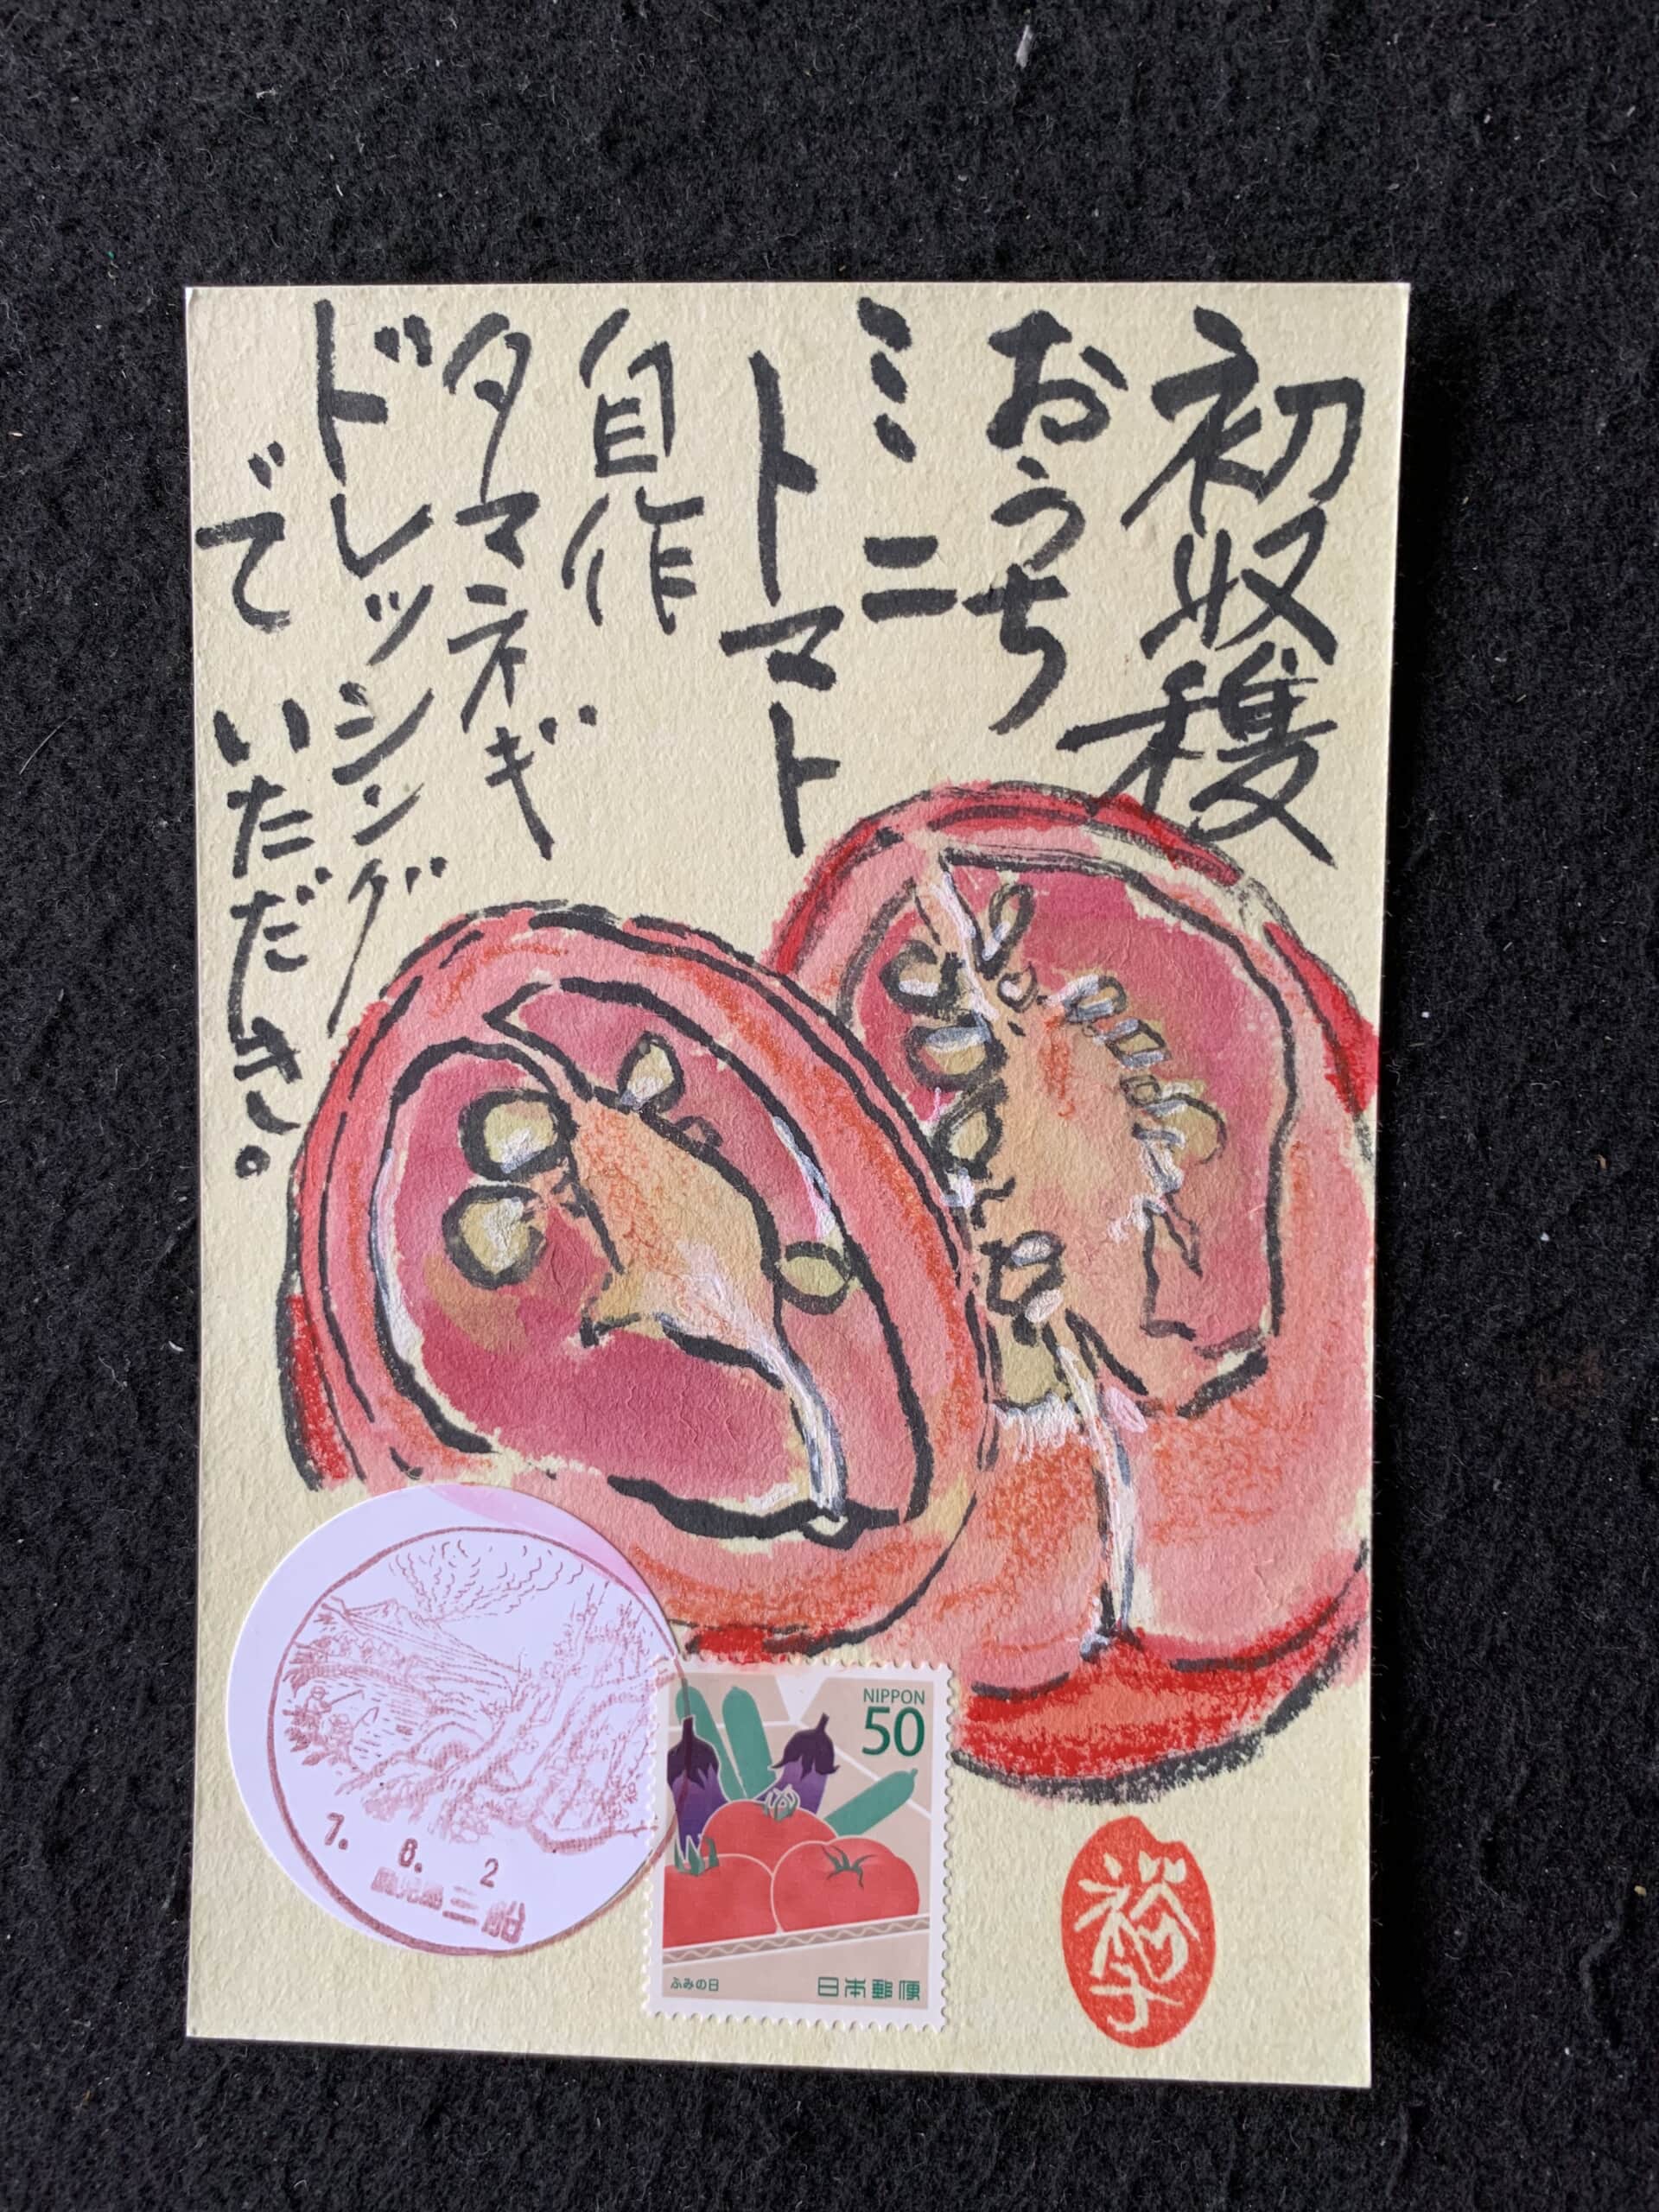 初収穫
おうち
ミニ
トマト
自作
タマネギ
ドレッシング
で いただき。
7. 6. 2
鹿児島三船
NIPPON
50
ふみの日
日本郵便
裕子